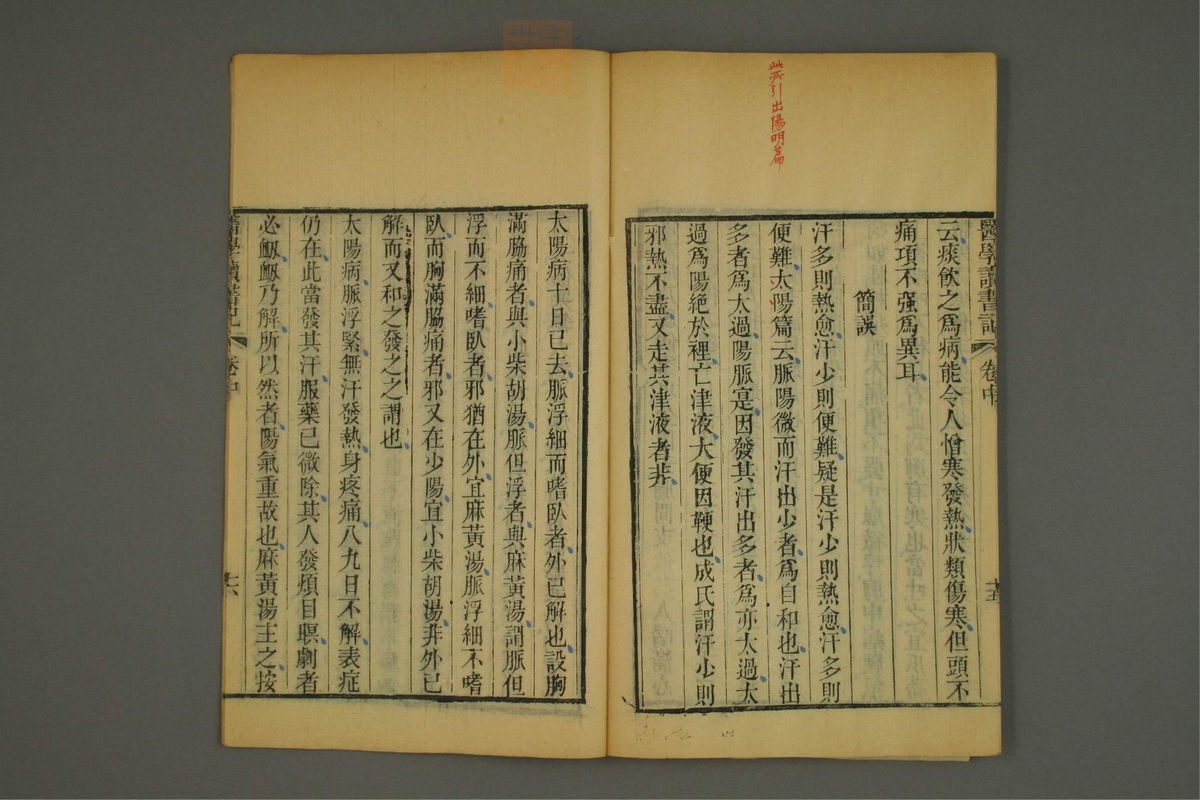 此所引出陽明篇
醫學讀書記
卷中
十五
云痰飲之爲病能令人憎寒發熱狀類傷寒但頭不
痛項不强爲異耳
簡誤
汗多則熱愈汗少則便難疑是汗少則熱愈汗多則
便難太陽篇云脈陽微而汗出少者爲自和也汗出
多者爲太過陽脈寔因發其汗出多者爲亦太過太
過爲陽絕於裡亡津液大便因鞕也成氏謂汗少則
邪熱不盡又走其津液者非
太陽病十日已去脈浮細而嗜臥者外已解也設胸
滿脇痛者與小柴胡湯脈但浮者與麻黃湯謂脈但
浮而不細嗜臥者邪猶在外宜麻黃湯脈浮細不嗜
臥而胸滿脇痛者邪又在少陽宜小柴胡湯非外已
解而又和之發之之謂也
太陽病脈浮緊無汗發熱身疼痛八九日不解表症
仍在此當發其汗服藥已微除其人發煩目瞑劇者
必衂衂乃解所以然者陽氣重故也麻黃湯主之按
醫學讀書記
卷中
十六